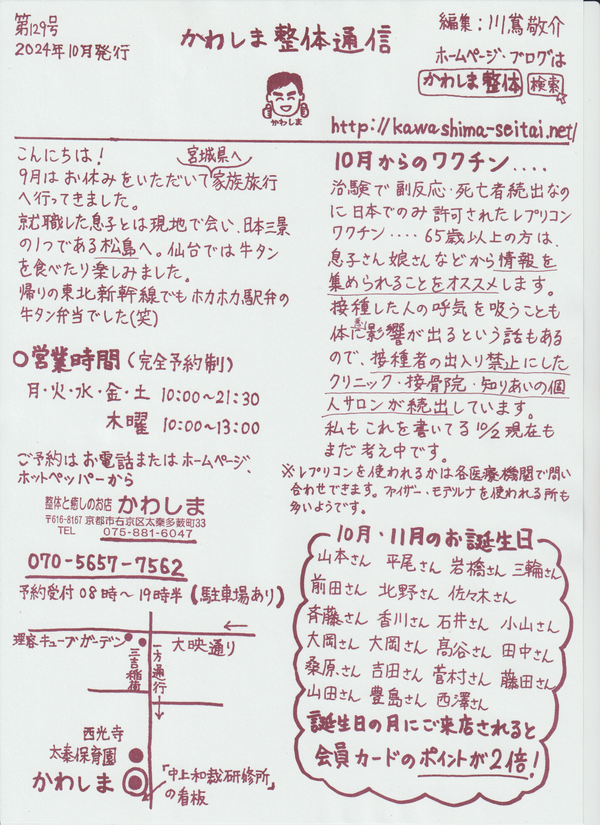 第129号
2024年10月発行
かわしま整体通信
かわしま
編集:川嶌敬介
ホームページ・ブログは
かわしま整体 検索
http://kawashima-seitai.net/
こんにちは!
宮城県へ
9月はお休みをいただいて家族旅行
へ行ってきました。
就職した息子とは現地で会い、日本三景
の1つである松島へ。仙台では牛タン
を食べたり楽しみました。
帰りの東北新幹線でもホカホカ駅弁の
牛タン弁当でした(笑)
○営業時間(完全予約制)
月・火・水・金・土 10:00〜21:30
木曜 10:00〜13:00
ご予約はお電話またはホームページ、
ホットペッパーから
整体と癒しのお店 かわしま
〒616-8167 京都市右京区太秦多藪町33
TEL 075-881-6047
070-5657-7562
予約受付 08時〜19時半(駐車場あり)
理容キューブガーデン
大映通り
三吉稲荷
一方通行
西光寺
太秦保育園
かわしま
「中上和裁研修所」
の看板
10月からのワクチン....
治験で副反応・死亡者続出なの
に日本でのみ許可されたレプリコン
ワクチン....65歳以上の方は、
息子さん娘さんなどから情報を
集められることをオススメします。
接種した人の呼気を吸うことも
体に悪影響が出るという話もある
ので、接種者の出入り禁止にした
クリニック・接骨院・知りあいの個
人サロンが続出しています。
私もこれを書いてる10/2現在も
まだ考え中です。
※レプリコンを使われるかは各医療機関で問い
合わせできます。ファイザー・モデルナを使われる所も
多いようです。
10月・11月のお誕生日
山本さん 平尾さん 岩橋さん 三輪さん
前田さん 北野さん 佐々木さん
斉藤さん 香川さん 石井さん 小山さん
大岡さん 大岡さん 髙谷さん 田中さん
桑原さん 吉田さん 菅村さん 藤田さん
山田さん 豊島さん 西澤さん
誕生日の月にご来店されると
会員カードのポイントが2倍!